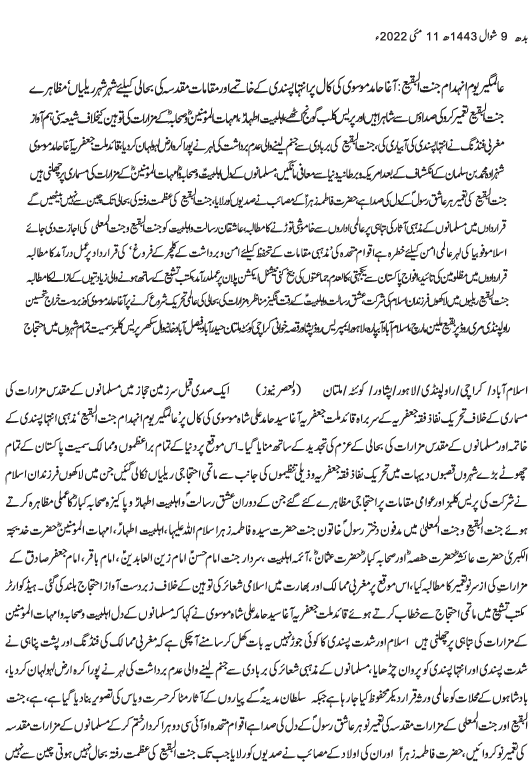 بدھ 9 شوال 1443ھ 11 مئی 2022ء
عالمگیر یوم انہدام جنت البقیع: آغا حامد موسوی کی کال پر انتہا پسندی کے خاتمے اور مقامات مقدسہ کی بحالی کیلئے شہر شہر ریلیاں مظاہرے
جنت البقیع تعمیر کرو کی صداؤں سے شاہراہیں اور پریس کلب گونج اٹھے، اہلبیت اطہارؑ، امہات المومنینؓ و صحابہؓ کے مزارات کی توہین کیخلاف شیعہ سنی ہم آواز
مغربی فنڈنگ نے انتہا پسندی کی آبیاری کی، جنت البقیع کی بربادی سے جنم لینے والی عدم برداشت کی لہر نے پورا کرہ ارض لہولہان کر دیا، قائد ملت جعفریہ آغا حامد موسوی
شہزادہ محمد بن سلمان کے انکشاف کے بعد امریکہ و برطانیہ دنیا سے معافی مانگیں؛ مسلمانوں کے دل اہلبیتؑ و صحابہؓ و امہات المومنینؓ کے مزارات کی مسماری پر چھلنی ہیں
جنت البقیع کی تعمیر ہر عاشق رسولؐ کے دل کی صدا ہے، حضرت فاطمہ زہراؑ کے مصائب نے صدیوں کو رلایا، جنت البقیع کی عظمت رفتہ کی بحالی تک چین سے نہیں بیٹھیں گے
قراردادوں میں مسلمانوں کے مذہبی آثار کی تباہی پر عالمی اداروں سے خاموشی توڑنے کا مطالبہ، عاشقان رسالت و اہلبیت کو جنت البقیع و جنت المعلی میں حاضری کی اجازت دی جائے
اسلامو فوبیا کی لہر عالمی امن کیلئے خطرہ ہے اقوام متحدہ کی 'مذہبی مقامات کے تحفظ کیلئے امن و برداشت کے کلچر کے فروغ' کی قرارداد پر عمل درآمد کا مطالبہ
قراردادوں میں مظلومین کی تائید، افواج پاکستان سے یکجہتی کا اعادہ، کالعدم جماعتوں کی بیخ کنی نیشنل ایکشن پلان پر عملدرآمد، مکتب تشیع کے ساتھ ہونے والی زیادتیوں کے ازالے کا مطالبہ
جنت البقیع ریلیوں میں لاکھوں فرزندان اسلام کی شرکت، عشق رسالت و اہلبیتؑ کے رقت انگیز مناظر، مزارات کی بحالی کی عالمی تحریک شروع کرنے پر آغا حامد موسوی کو زبردست خراج تحسین
راولپنڈی مری روڈ پر عظیم مارچ، اسلام آباد آبپارہ، لاہور ایمپریس روڈ، پشاور قصہ خوانی، کراچی کوئٹہ ملتان حیدر آباد فیصل آباد خانیوال سکھر پریس کلبز سمیت تمام شہروں میں احتجاج
اسلام آباد/ کراچی/ راولپنڈی/ لاہور/ پشاور/ کوئٹہ/ ملتان (ولعصر نیوز) ایک صدی قبل سر زمین حجاز میں مسلمانوں کے مقدس مزارات کی
مسماری کے خلاف تحریک نفاذ فقہ جعفریہ کے سربراہ قائد ملت جعفریہ آغا سید حامد علی شاہ موسوی کی کال پر 'عالمگیر یوم انہدام جنت البقیع' مذہبی انتہا پسندی کے
خاتمہ اور مسلمانوں کے مقدس مزارات کی بحالی کے عزم کی تجدید کے ساتھ منایا گیا۔ اس موقع پر دنیا کے تمام براعظموں و ممالک سمیت پاکستان کے تمام
چھوٹے بڑے شہروں قصبوں دیہات میں تحریک نفاذ فقہ جعفریہ و ذیلی تنظیموں کی جانب سے ماتمی احتجاجی ریلیاں نکالی گئیں جن میں لاکھوں فرزندان اسلام
نے شرکت کی پریس کلبز اور عوامی مقامات پر احتجاجی مظاہرے کئے گئے جن کے دوران عشق رسالت و اہلبیت اطہارؑ و پاکیزہ صحابہ کبارؓ کا عملی مظاہرہ کرتے
ہوئے جنت البقیع و جنت المعلیٰ میں مدفون دختر رسولؐ خاتون جنت حضرت سیدہ فاطمہ زہرا سلام اللہ علیہا، اہلبیت اطہارؑ، امہات المومنینؓ حضرت خدیجۃ
الکبریٰ حضرت عائشہؓ حضرت حفصہؓ اور صحابہ کبارؓ حضرت عثمانؓ، آئمہ اہلبیتؑ، سردار جنت امام حسنؑ امام زین العابدینؑ، امام باقرؑ، امام جعفر صادقؑ کے
مزارات کی از سر نو تعمیر کا مطالبہ کیا، اس موقع پر مغربی ممالک اور بھارت میں اسلامی شعائر کی توہین کے خلاف زبردست آواز احتجاج بلند کی گئی۔ ہیڈ کوارٹر
مکتب تشیع میں ماتمی احتجاج سے خطاب کرتے ہوئے قائد ملت جعفریہ آغا سید حامد علی شاہ موسوی نے کہا کہ مسلمانوں کے دل اہلبیت و صحابہ و امہات المومنین
کے مزارات کی تباہی پر چھلنی ہیں اسلام اور شدت پسندی کا کوئی جوڑ نہیں یہ بات کھل کر سامنے آ چکی ہے کہ مغربی ممالک کی فنڈنگ اور پشت پناہی نے
شدت پسندی اور انتہا پسندی کو پروان چڑھایا، مسلمانوں کے مذہبی شعائر کی بربادی سے جنم لینے والی عدم برداشت کی لہر نے پورا کرہ ارض لہولہان کر دیا،
بادشاہوں کے محلات کو عالمی ورثہ قرار دیکر محفوظ کیا جا رہا ہے جبکہ سلطان مدینہؐ کے پیاروں کے آثار مٹا کر حسرت و یاس کی تصویر بنا دیا گیا ہے، جنت
البقیع اور جنت المعلی کے مزارات مقدسہ کی تعمیر نو ہر عاشق رسولؐ کے دل کی صدا ہے اقوام متحدہ او آئی سی دوہرا کردار ختم کر کے مسلمانوں کے مزارات مقدسہ
کی تعمیر نو کروائیں، حضرت فاطمہ زہراؑ اور ان کی اولاد کے مصائب نے صدیوں کو رلایا جب تک جنت البقیع کی عظمت رفتہ بحال نہیں ہوتی چین سے نہیں